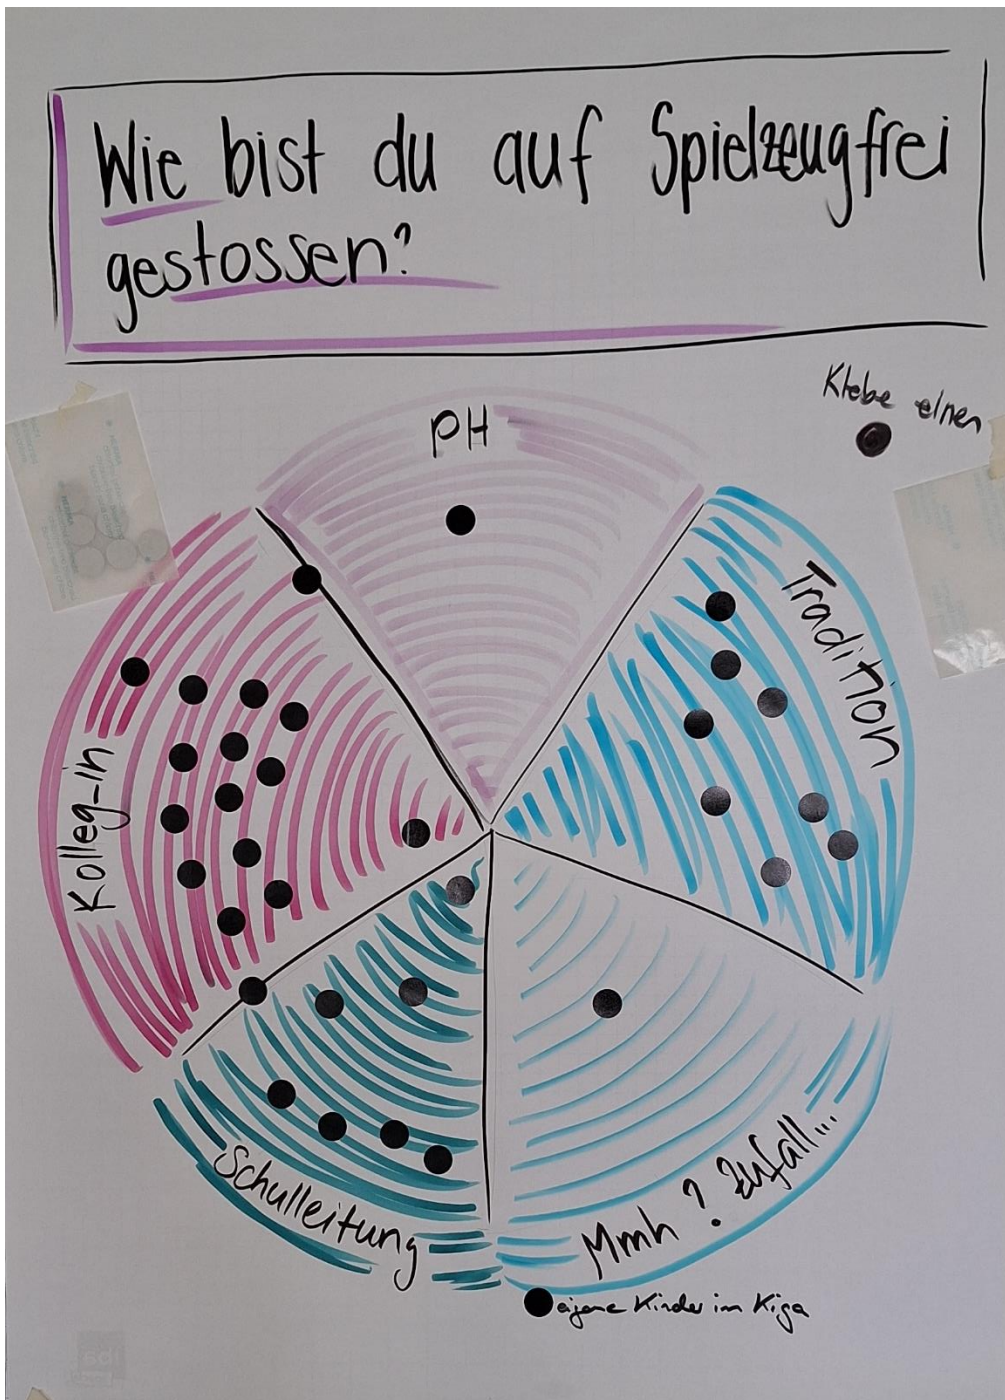 Wie bist du auf Spielzeugfrei
gestossen?
Klebe einen
PH
Tradition
Kolleg-in
Schulleitung
Mmh? Zufall...
eigene Kinder im Kiga